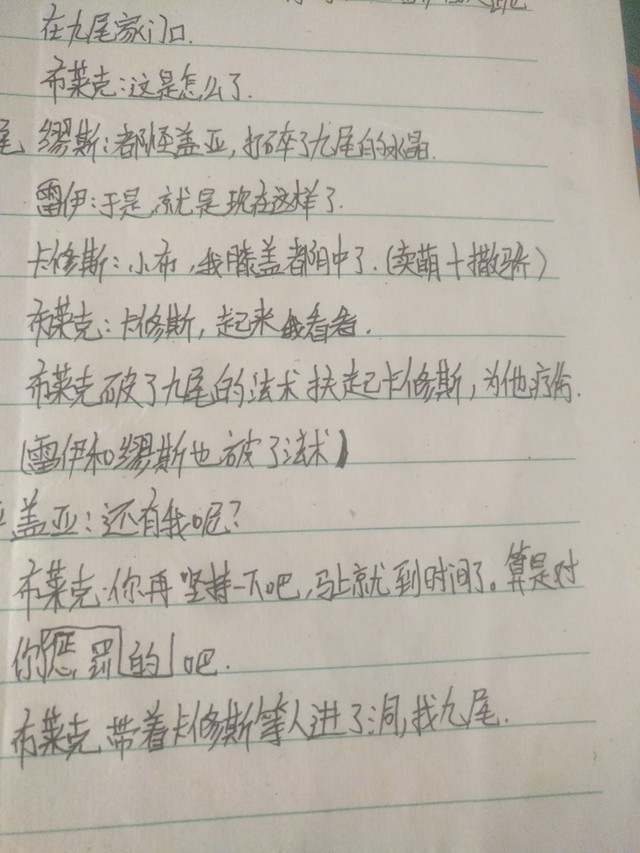 在九尾家门口.
布莱克:这是怎么了.
尾 缪斯:都怪盖亚,打碎了九尾的水晶.
雷伊:于是,就是现在这样了.
卡修斯:小布,我膝盖都肿了.(卖萌+撒娇)
布莱克:卡修斯,起来我看看.
布莱克破了九尾的法术扶起卡修斯,为他疗伤.
(雷伊和缪斯也破了法术)
盖亚:还有我呢?
布莱克:你再坚持一下吧,马上就到时间了。算是对
你惩罚的吧.
布莱克带着卡修斯等人进了洞,找九尾.